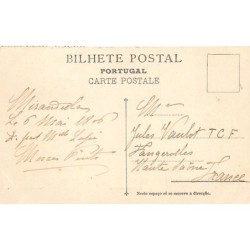 BILHETE POSTAL
PORTUGAL
CARTE POSTALE
Mirandella
Le 6 Mai 1906
Jules Vautot T C F
Fangerolles
Haute Saône
France
Neste espaço só se escreve a direcção.